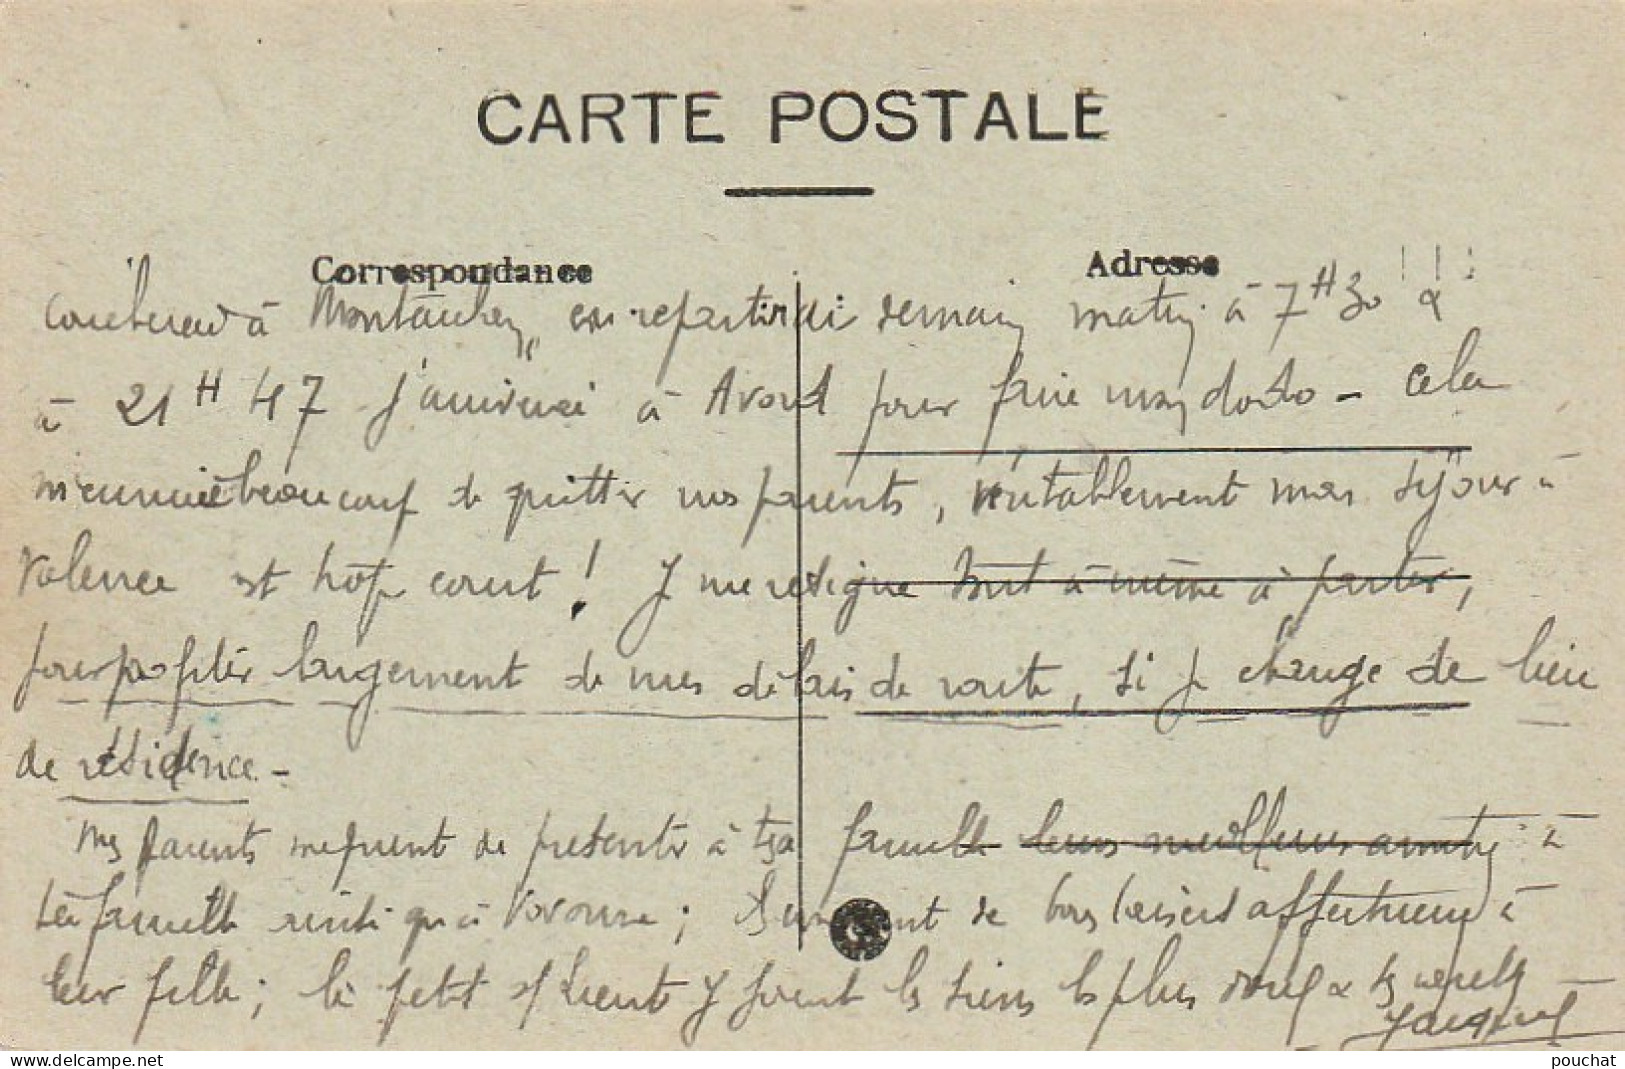 CARTE POSTALE
Correspondance
Adresse
coucherai à Montauban, en repartirai demain matin à 7H30 !!! &
à 21H47 j'arriverai à Avord pour faire mon dodo - cela
m'ennuie beaucoup de quitter nos parents, véritablement mon séjour à
Valence est trop court ! Je me résigne tout à même à partir,
pour profiter largement de mes délais de route, si je change de lieu
de résidence -
Mes parents me prient de présenter à ta famille leurs meilleures amitiés à
la famille ainsi qu'à ; de bons baisers affectueux à
leur fille ; le petit y joint les siens les plus doux &
pouchat